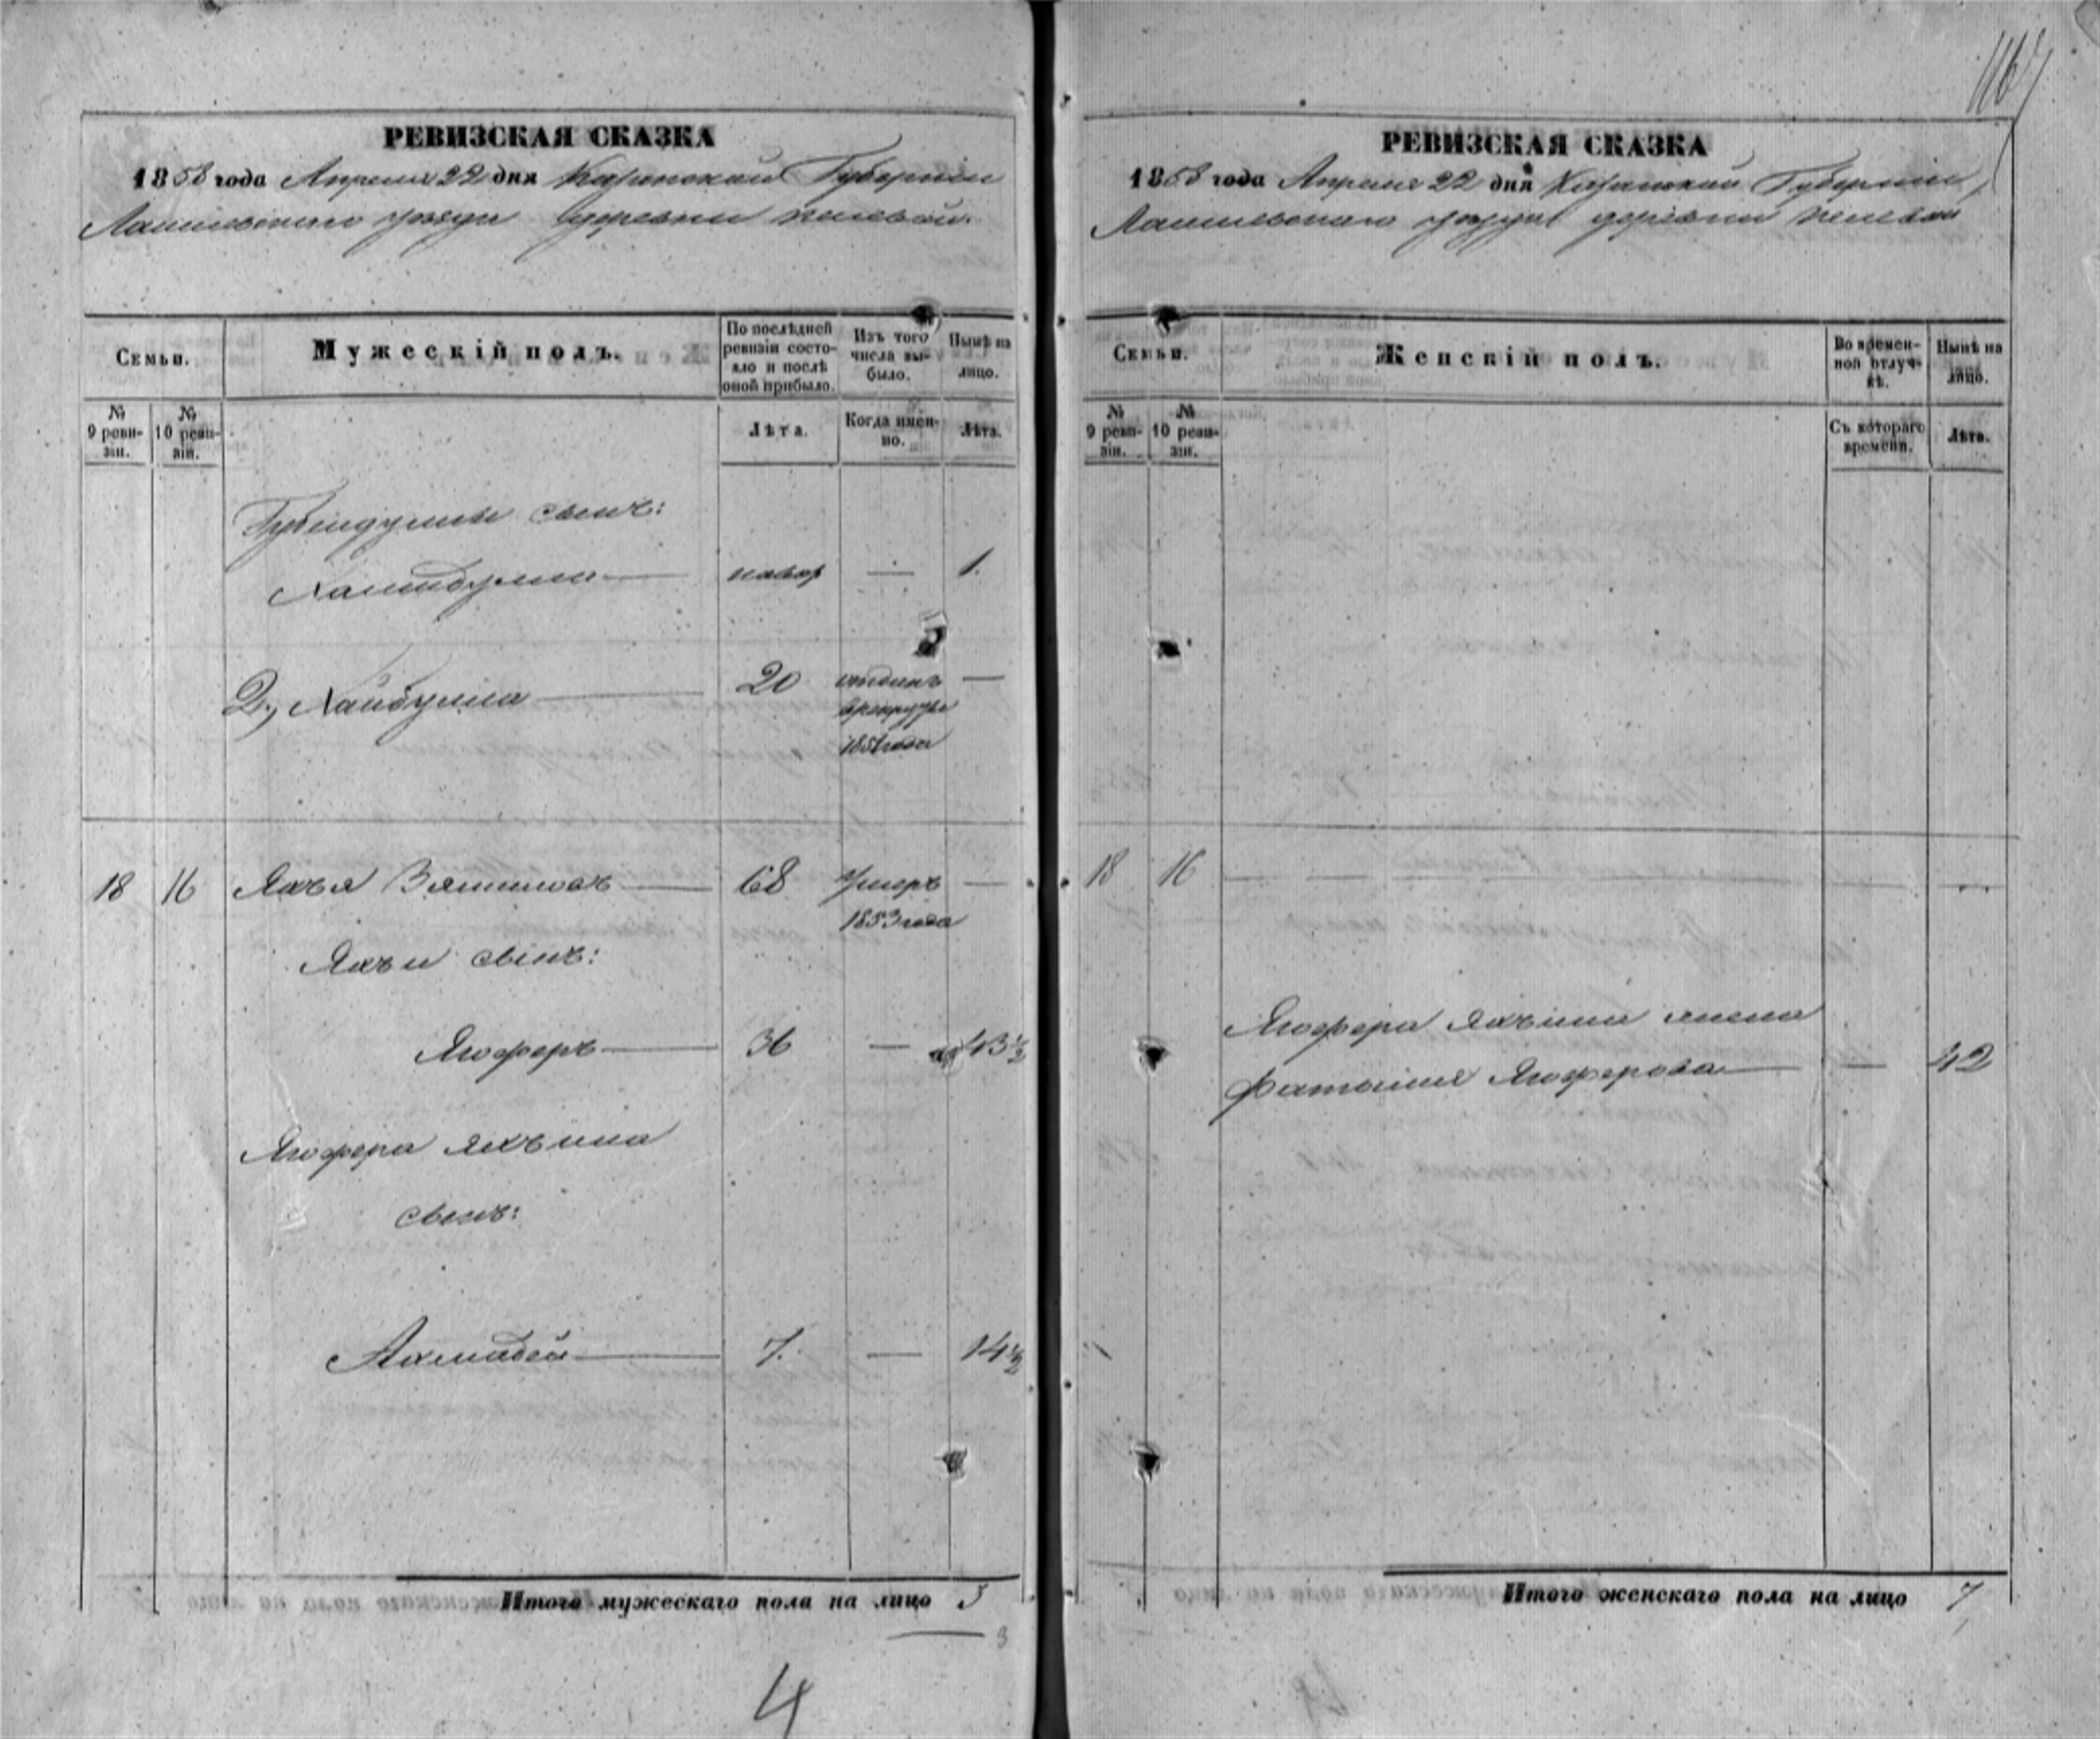 1167
РЕВИЗСКАЯ СКАЗКА
1858 года Апреля 22 дня Казанской Губернии
Лаишевского уезда деревни
Семьи.
Мужескій полъ.
По послѣдней ревизіи состояло и послѣ оной прибыло.
Изъ того числа выбыло.
Нынѣ на лицо.
№ 9 ревизіи.
№ 10 ревизіи.
Лѣта.
Когда именно.
Лѣта.
сынъ:
— 1.
2, Хайбулла — 20 отданъ —
в рекруты
1851 года
18 16 Яхъя — 68 умеръ —
1853 года
Яхъи сынъ:
Ягоферъ — 36 — 43 ½
Ягофера Яхъина
сынъ:
Ахмадей — 7. — 14 ½
Итого мужескаго пола на лицо 3
3
4
РЕВИЗСКАЯ СКАЗКА
1858 года Апреля 22 дня Казанской Губернии,
Лаишевскаго уезда деревни
Семьи.
Женскій полъ.
Во временной отлучкѣ.
Нынѣ на лицо.
№ 9 ревизіи.
№ 10 ревизіи.
Съ котораго времени.
Лѣта.
18 16 — — — — —
Ягофера Яхъина жена
Ягоферова — — 42
Итого женскаго пола на лицо 1